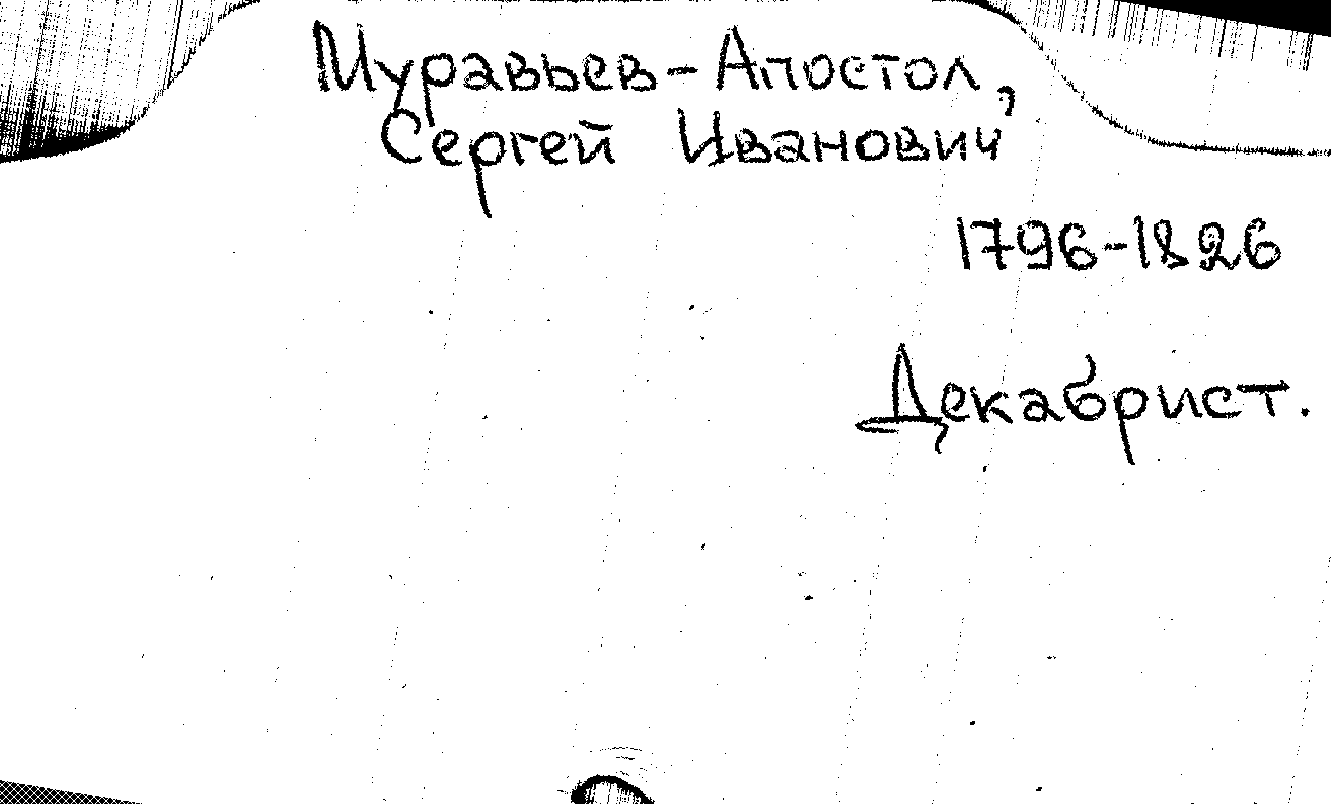 Муравьев-Апостол,
Сергей Иванович
1796-1826
Декабрист.